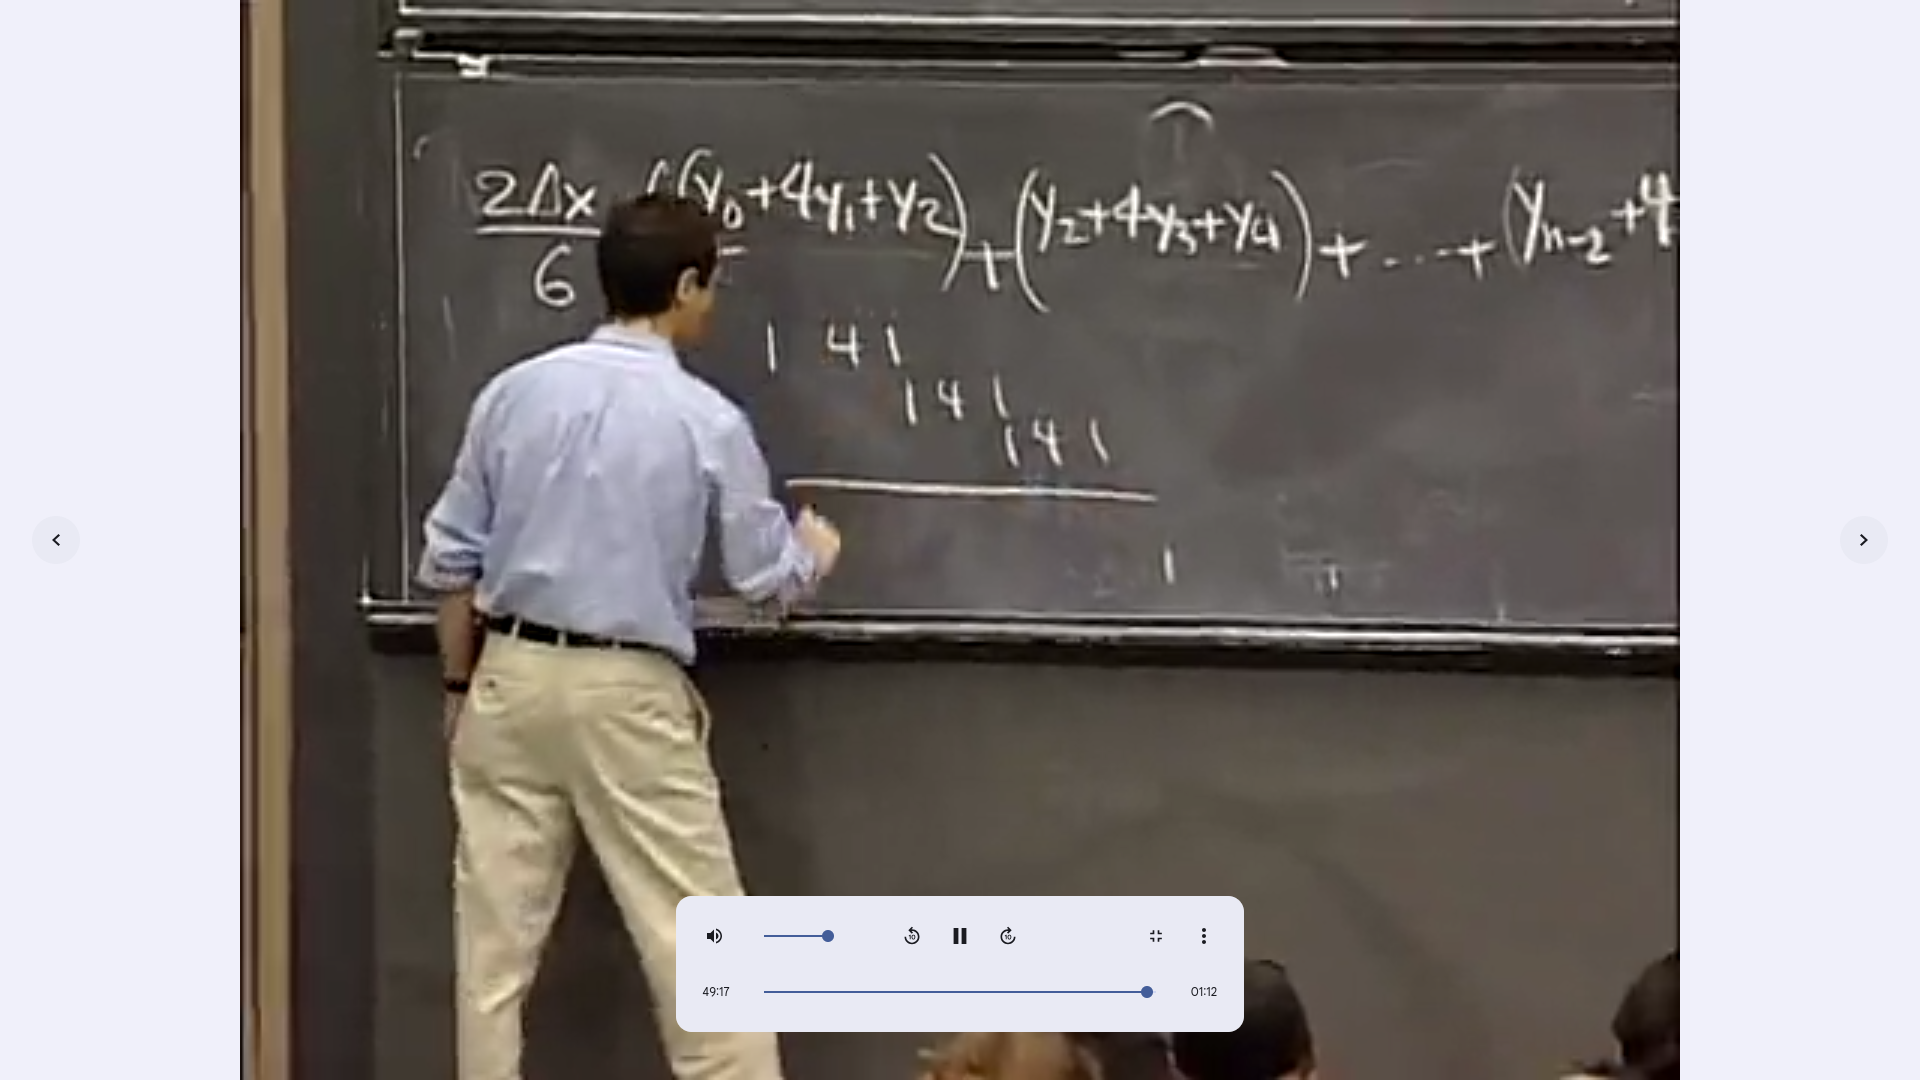 2Δx/6 ((y₀+4y₁+y₂)+(y₂+4y₃+y₄)+...+(yₙ₋₂+4
1 4 1
1 4 1
1 4 1
1
49:17 01:12